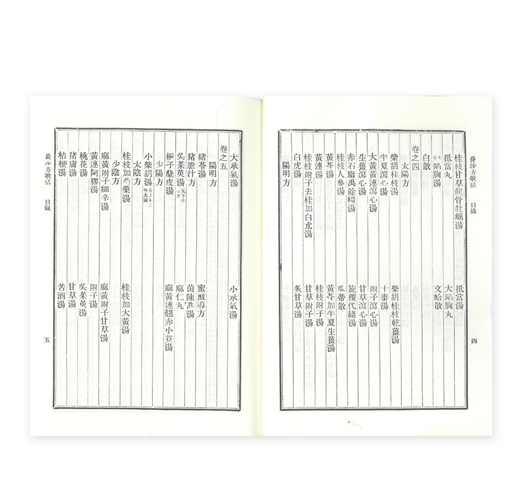 長沙方歌括 目錄 四
桂枝甘草龍骨牡蠣湯 抵當湯
抵當丸 大陷胸丸
小陷胸湯 文蛤散
白散
卷之四
太陽方
柴胡桂枝湯 柴胡桂枝乾薑湯
半夏瀉心湯 十棗湯
大黃黃連瀉心湯 附子瀉心湯
生薑瀉心湯 甘草瀉心湯
赤石脂禹餘糧湯 旋覆代赭湯
桂枝人參湯 瓜蒂散
黃芩湯 黃芩加半夏生薑湯
黃連湯 桂枝附子湯
桂枝附子去桂加白朮湯 甘草附子湯
白虎湯 炙甘草湯
陽明方
大承氣湯 小承氣湯
卷之五
陽明方
豬苓湯 蜜煎導方
豬膽汁方 茵陳蒿湯
吳茱萸湯 麻仁丸
梔子蘗皮湯 麻黃連翹赤小豆湯
少陽方
小柴胡湯
太陰方
桂枝加芍藥湯 桂枝加大黃湯
少陰方
麻黃附子細辛湯 麻黃附子甘草湯
黃連阿膠湯 附子湯
桃花湯 吳茱萸湯
豬膚湯 甘草湯
桔梗湯 苦酒湯
長沙方歌括 目錄 五